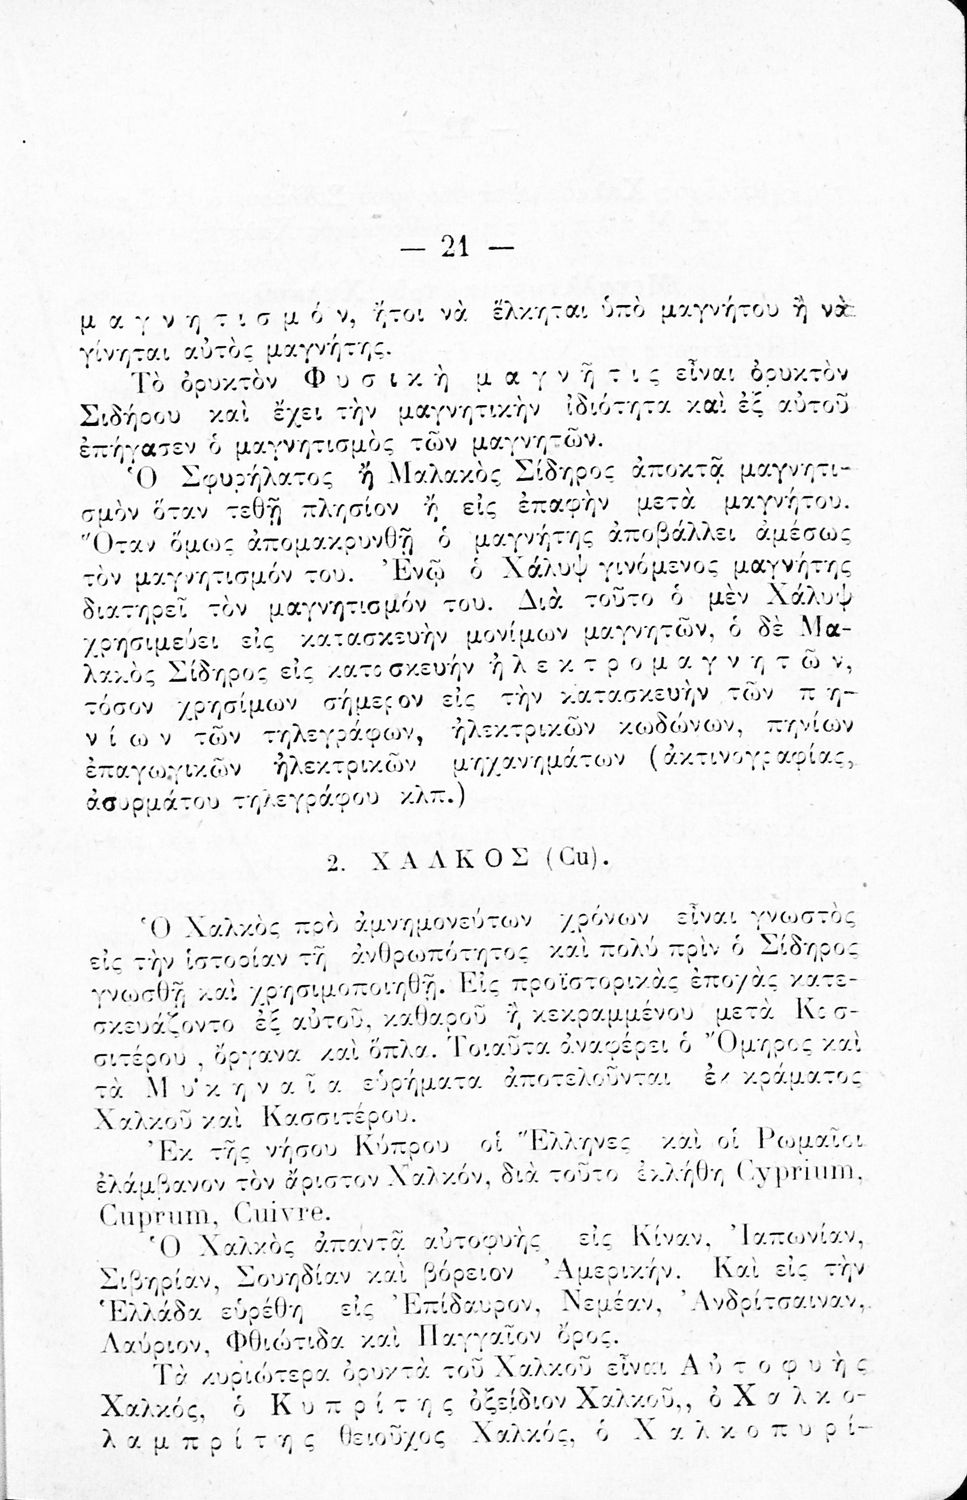 — 21 —
μαγνητισμόν, ἤτοι νὰ ἕλκηται ὑπὸ μαγνήτου ἢ νὰ
γίνηται αὐτὸς μαγνήτης.
Τὸ ὀρυκτὸν Φυσικὴ μαγνῆτις εἶναι ὀρυκτὸν
Σιδήρου καὶ ἔχει τὴν μαγνητικὴν ἰδιότητα καὶ ἐξ αὐτοῦ
ἐπήγασεν ὁ μαγνητισμὸς τῶν μαγνητῶν.
Ὁ Σφυρήλατος ἢ Μαλακὸς Σίδηρος ἀποκτᾷ μαγνητι-
σμὸν ὅταν τεθῇ πλησίον ἢ εἰς ἐπαφὴν μετὰ μαγνήτου.
Ὅταν ὅμως ἀπομακρυνθῇ ὁ μαγνήτης ἀποβάλλει ἀμέσως
τὸν μαγνητισμόν του. Ἐνῷ ὁ Χάλυψ γινόμενος μαγνήτης
διατηρεῖ τὸν μαγνητισμόν του. Διὰ τοῦτο ὁ μὲν Χάλυψ
χρησιμεύει εἰς κατασκευὴν μονίμων μαγνητῶν, ὁ δὲ Μα-
λακὸς Σίδηρος εἰς κατασκευήν ἠλεκτρομαγνητῶν,
τόσον χρησίμων σήμερον εἰς τὴν κατασκευὴν τῶν πη-
νίων τῶν τηλεγράφων, ἠλεκτρικῶν κωδώνων, πηνίων
ἐπαγωγικῶν ἠλεκτρικῶν μηχανημάτων (ἀκτινογραφίας,
ἀσυρμάτου τηλεγράφου κλπ.)
2. ΧΑΛΚΟΣ (Cu).
Ὁ Χαλκὸς πρὸ ἀμνημονεύτων χρόνων εἶναι γνωστὸς
εἰς τὴν ἱστορίαν τῆ ἀνθρωπότητος καὶ πολύ πρὶν ὁ Σίδηρος
γνωσθῇ καὶ χρησιμοποιηθῇ. Εἰς προϊστορικὰς ἐποχὰς κατε-
σκευάζοντο ἐξ αὐτοῦ, καθαροῦ ἢ κεκραμμένου μετὰ Κασ-
σιτέρου , ὄργανα καὶ ὅπλα. Τοιαῦτα ἀναφέρει ὁ Ὅμηρος καὶ
τὰ Μυκηναῖα εὑρήματα ἀποτελοῦνται ἐκ κράματος
Χαλκοῦ καὶ Κασσιτέρου.
Ἐκ τῆς νήσου Κύπρου οἱ Ἕλληνες καὶ οἱ Ρωμαῖοι
ἐλάμβανον τὸν ἄριστον Χαλκόν, διὰ τοῦτο ἐκλήθη Cyprium,
Cuprum, Cuivre.
Ὁ Χαλκὸς ἀπαντᾷ αὐτοφυὴς εἰς Κίναν, Ἰαπωνίαν,
Σιβηρίαν, Σουηδίαν καὶ βόρειον Ἀμερικήν. Καὶ εἰς τὴν
Ἑλλάδα εὑρέθη εἰς Ἐπίδαυρον, Νεμέαν, Ἀνδρίτσαιναν,
Λαύριον, Φθιώτιδα καὶ Παγγαῖον ὄρος.
Τὰ κυριώτερα ὀρυκτὰ τοῦ Χαλκοῦ εἶναι Αὐτοφυὴς
Χαλκός, ὁ Κυπρίτης ὀξείδιον Χαλκοῦ,, ὁ Χαλκο-
λαμπρίτης θειοῦχος Χαλκός, ὁ Χαλκοπυρί-